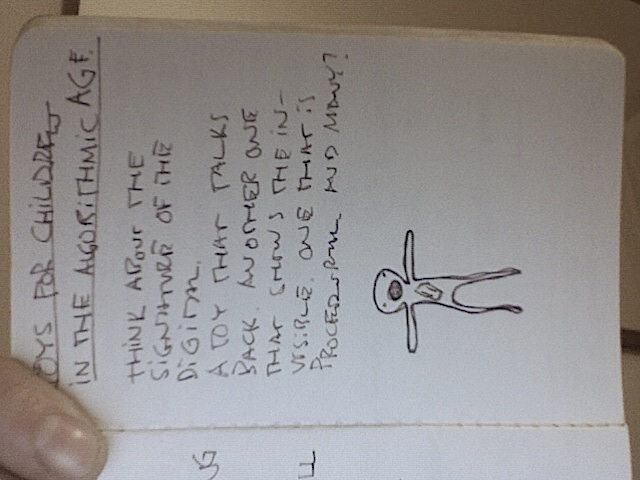 TOYS FOR CHILDREN
IN THE ALGORITHMIC AGE.
THINK ABOUT THE
SIGNATURE OF THE
DIGITAL.
A TOY THAT TALKS
BACK. ANOTHER ONE
THAT SHOWS THE IN-
VISIBLE. ONE THAT IS
PROCEDURAL. AND MANY?